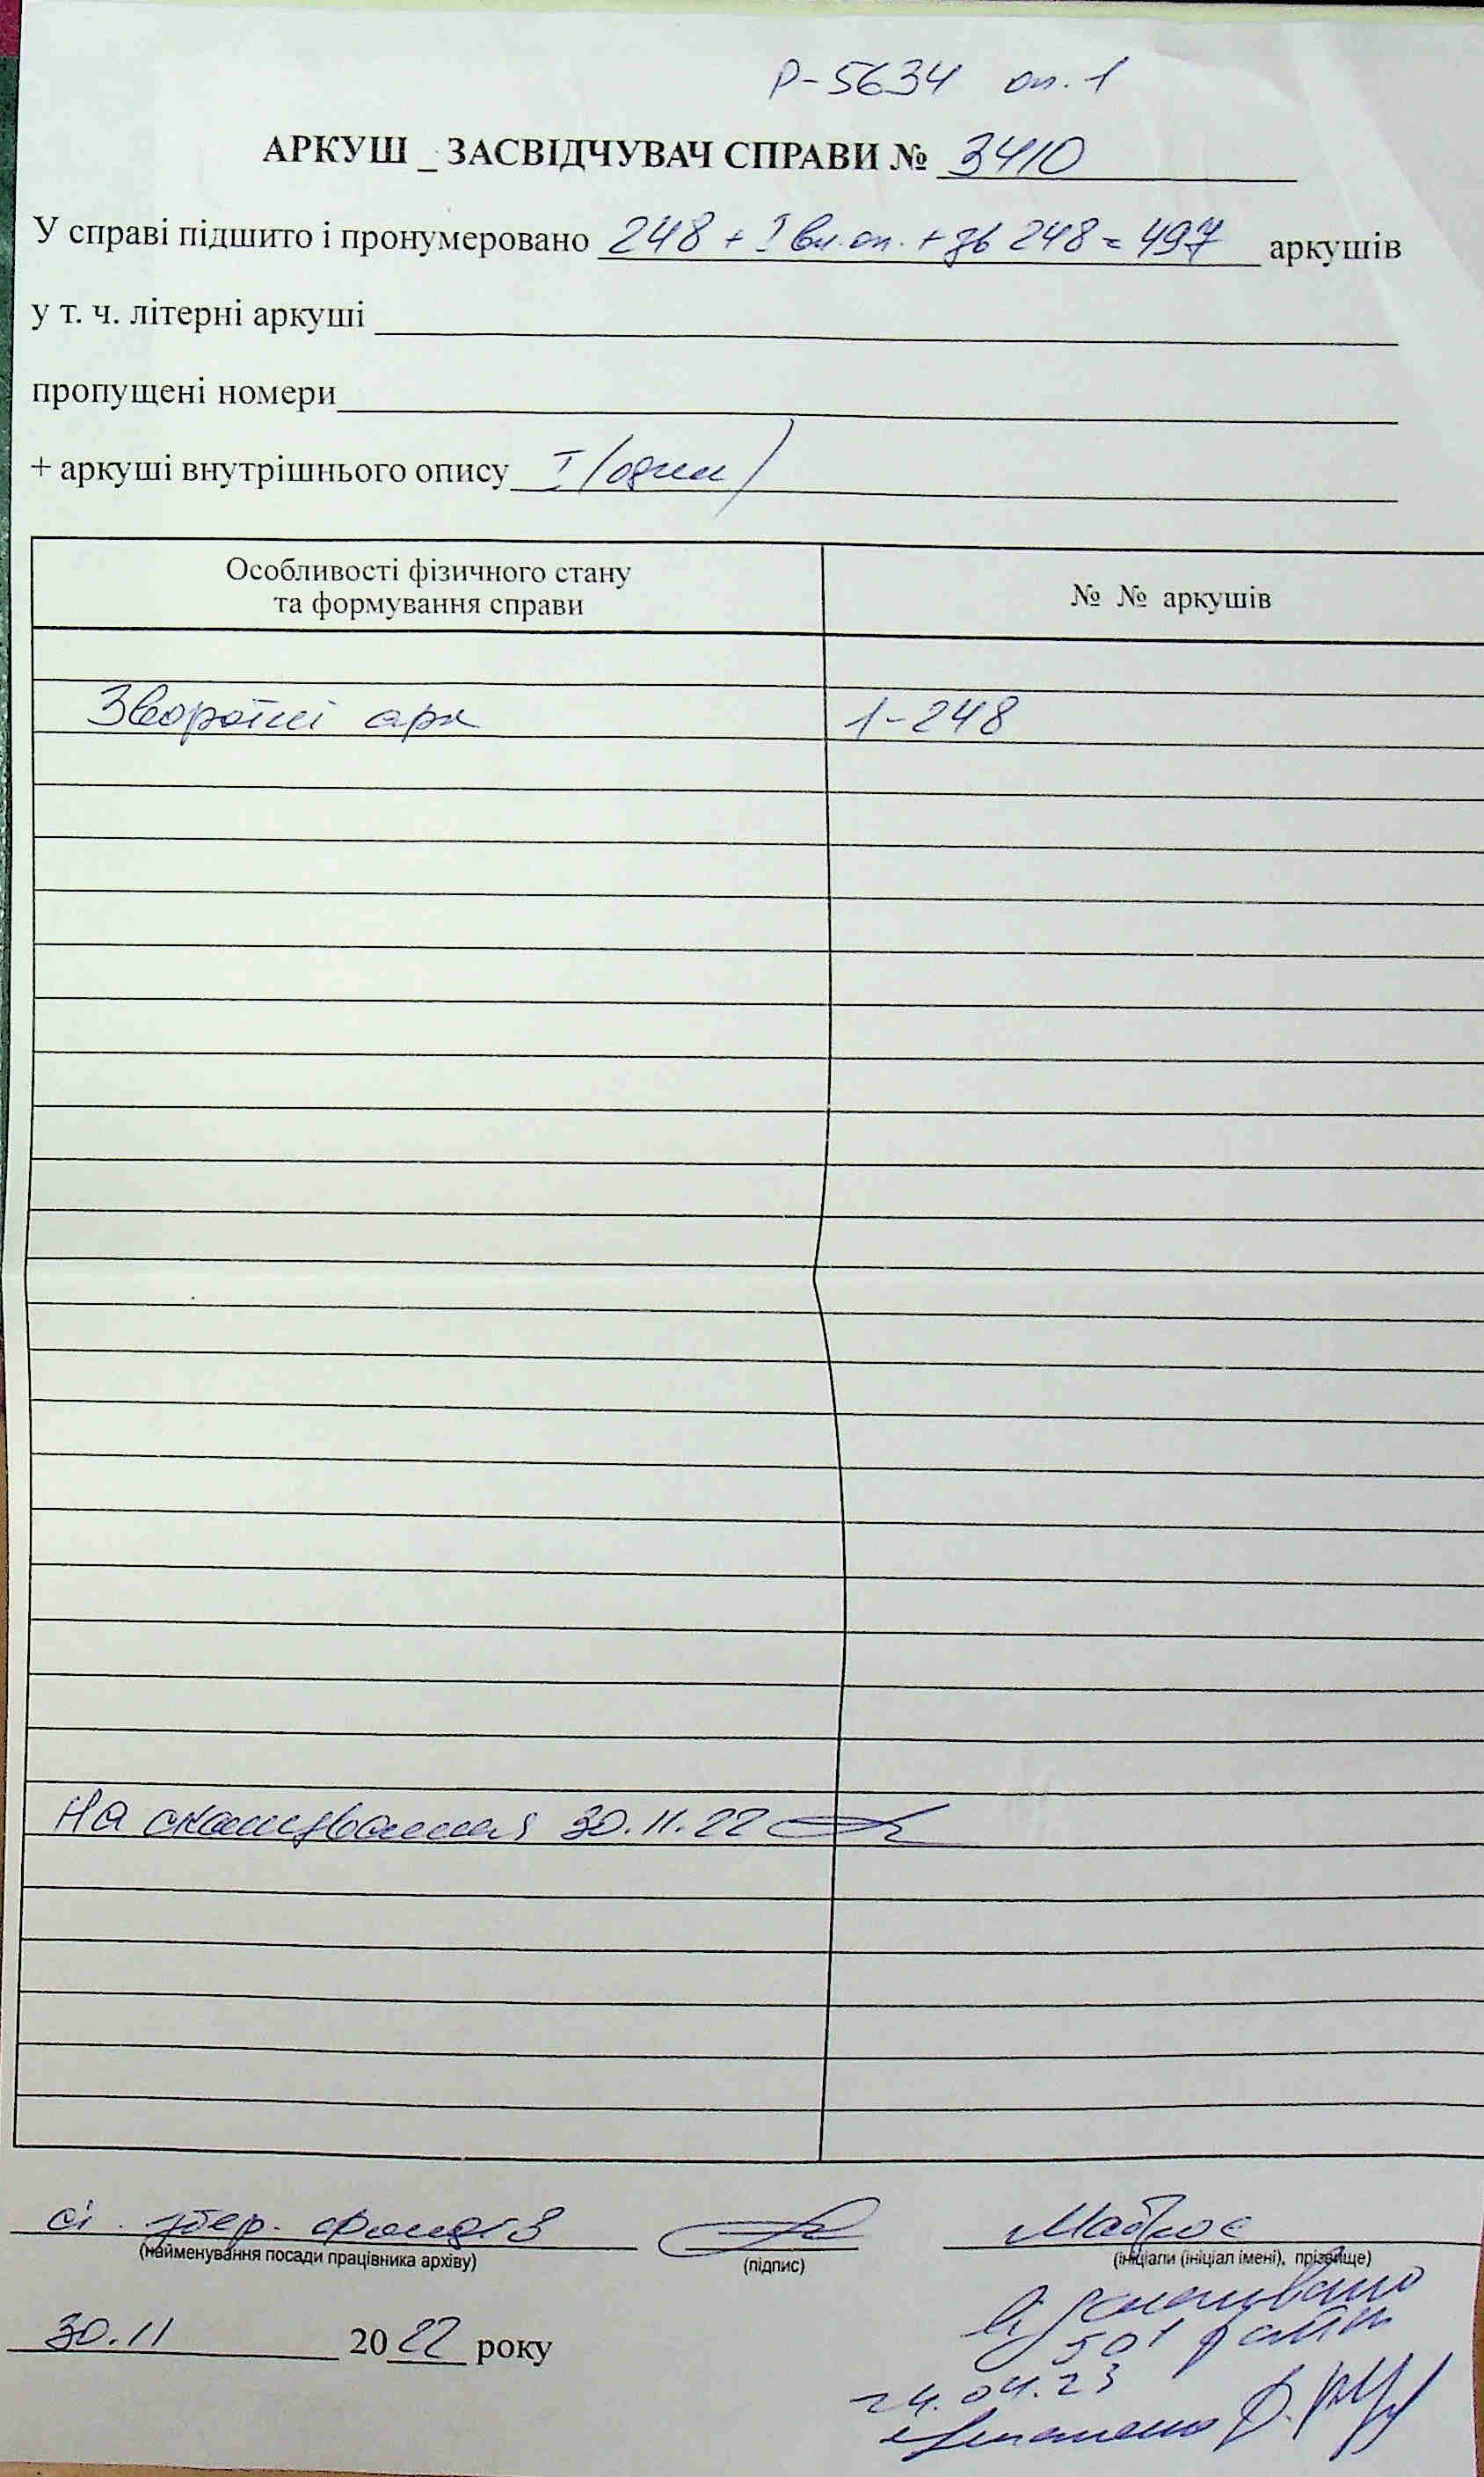 Р-5634 оп. 1
АРКУШ _ ЗАСВІДЧУВАЧ СПРАВИ № 3410
У справі підшито і пронумеровано 248 + I вн. оп. + зв 248 = 497 аркушів
у т. ч. літерні аркуші
пропущені номери
+ аркуші внутрішнього опису I (один)
Особливості фізичного стану
та формування справи
№ № аркушів
Зворотні арк 1-248
На сканування 30.11.22
збер. фондів
(найменування посади працівника архіву) (підпис) (ініціали (ініціал імені), прізвище)
30.11 2022 року
Відскановано
501 файл
24.04.23